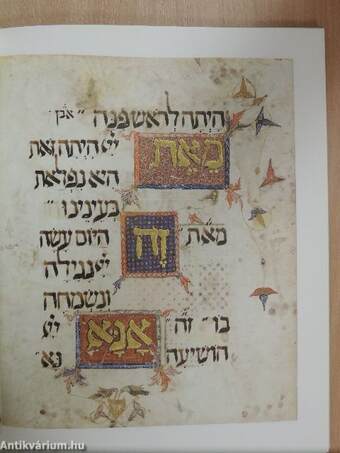 היתה לראש פנה ״ אבן
מאת יי היתה זאת
היא נפלאת
בעינינו
מאת ״ זה היום עשה
יי נגילה
ונשמחה
בו ״ זה ״ אנא יי
הושיעה נא
Antikvárium.hu